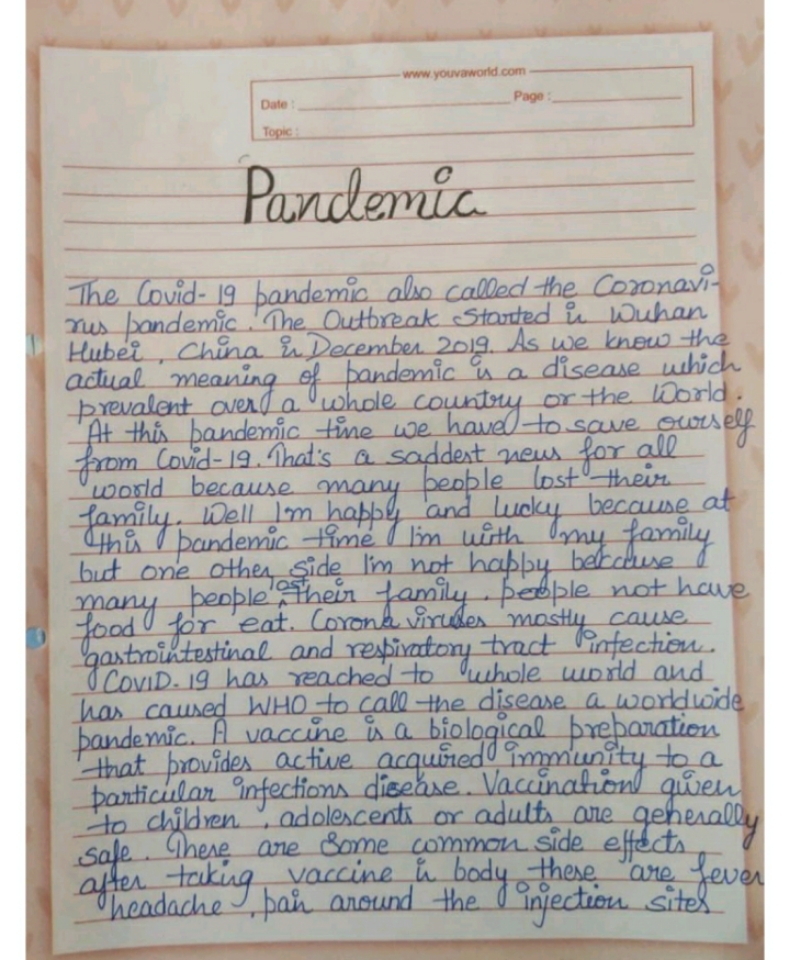 www.youvaworld.com
Date : Page :
Topic :
Pandemic
The Covid-19 pandemic also called the Coronavi-
rus pandemic. The Outbreak Started in Wuhan
Hubei, China in December 2019. As we know the
actual meaning of pandemic is a disease which
prevalent over a whole country or the World.
At this pandemic time we have to save ourself
from Covid-19. That's a saddest news for all
world because many people lost their
family. Well I'm happy and lucky because at
this pandemic time I'm with my family
but one other side I'm not happy because
many people lost their family. people not have
food for eat. Corona viruses mostly cause
gastrointestinal and respiratory tract infection.
COVID.19 has reached to whole world and
has caused WHO to call the disease a worldwide
pandemic. A vaccine is a biological preparation
that provides active acquired immunity to a
particular infections disease. Vaccination given
to children, adolescents or adults are generally
safe. There are Some common side effects
after taking vaccine in body these are fever
headache, pain around the injection sites